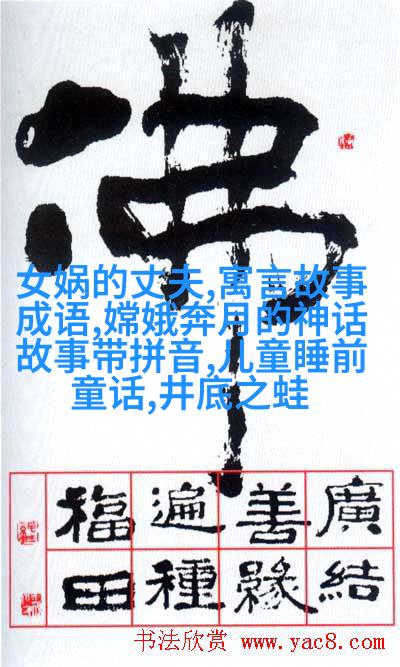 佛
女娲的丈夫,寓言故事
成语,嫦娥奔月的神话
故事带拼音,儿童睡前
童话,井底之蛙
廣結
善緣
遍種
福田
书法欣赏 www.yac8.com